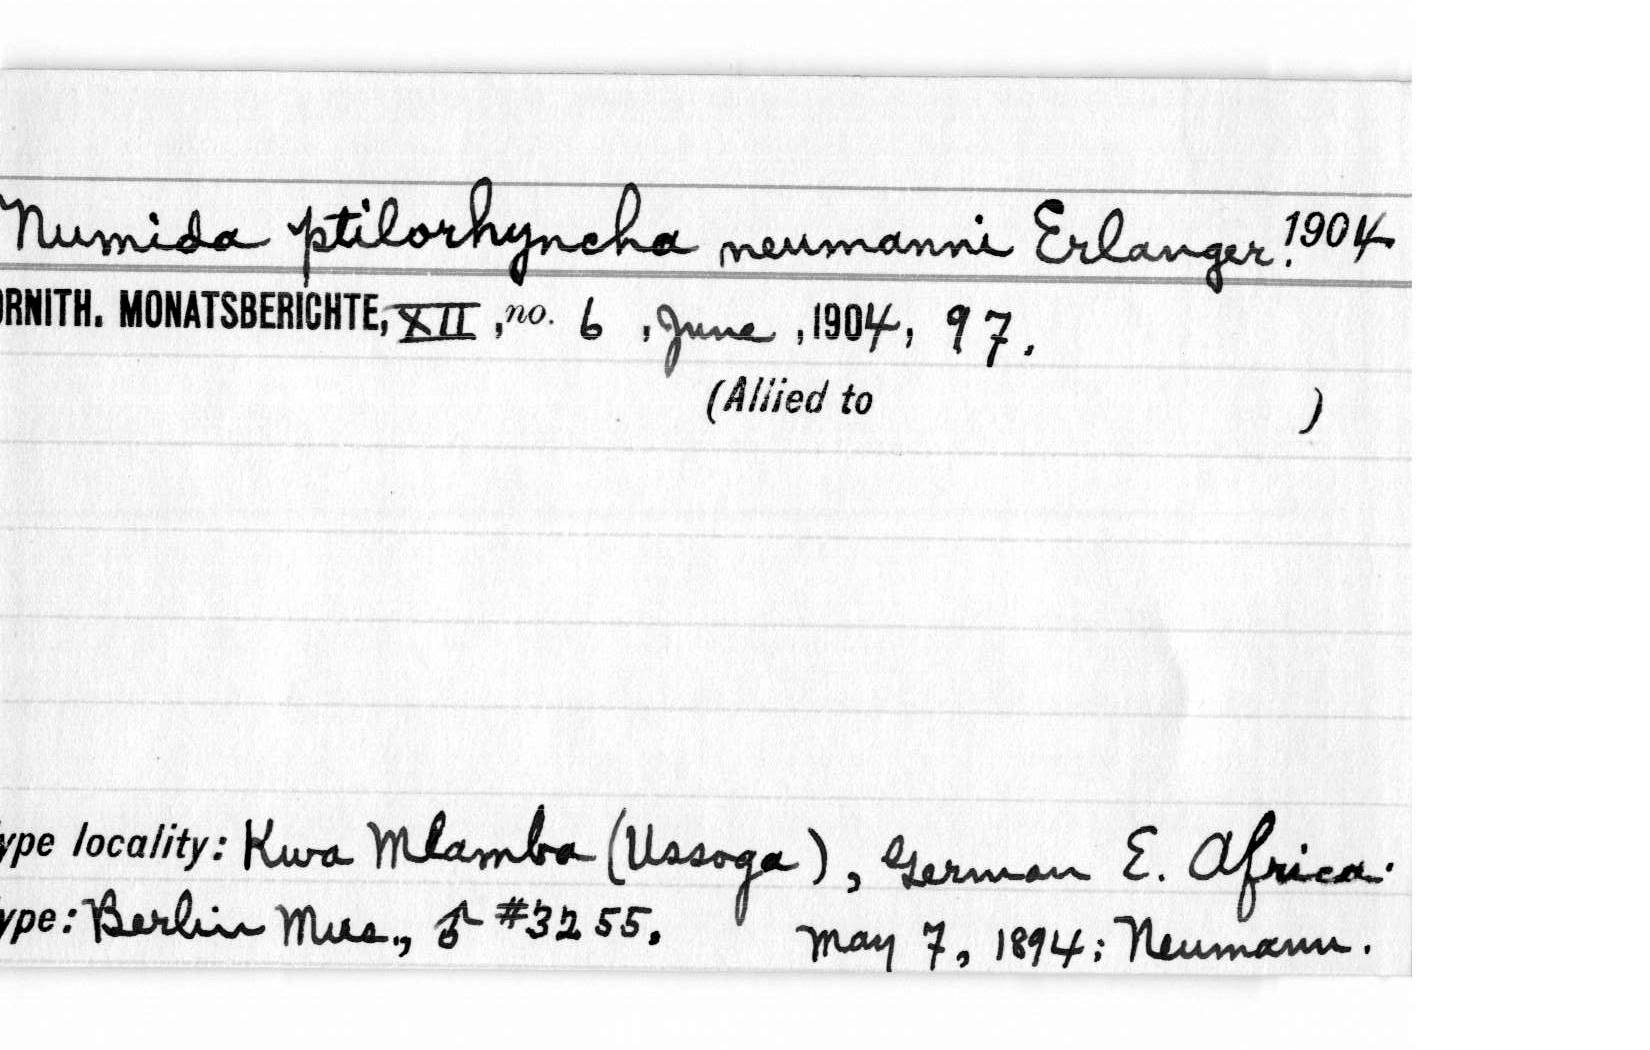 Numida ptilorhyncha neumanni Erlanger. 1904
ORNITH. MONATSBERICHTE, XII, no. 6, June, 1904, 97.
(Allied to )
ype locality: Kwa Mlamba (Ussoga), German E. Africa.
ype: Berlin Mus., ♂ #3255. May 7, 1894; Neumann.